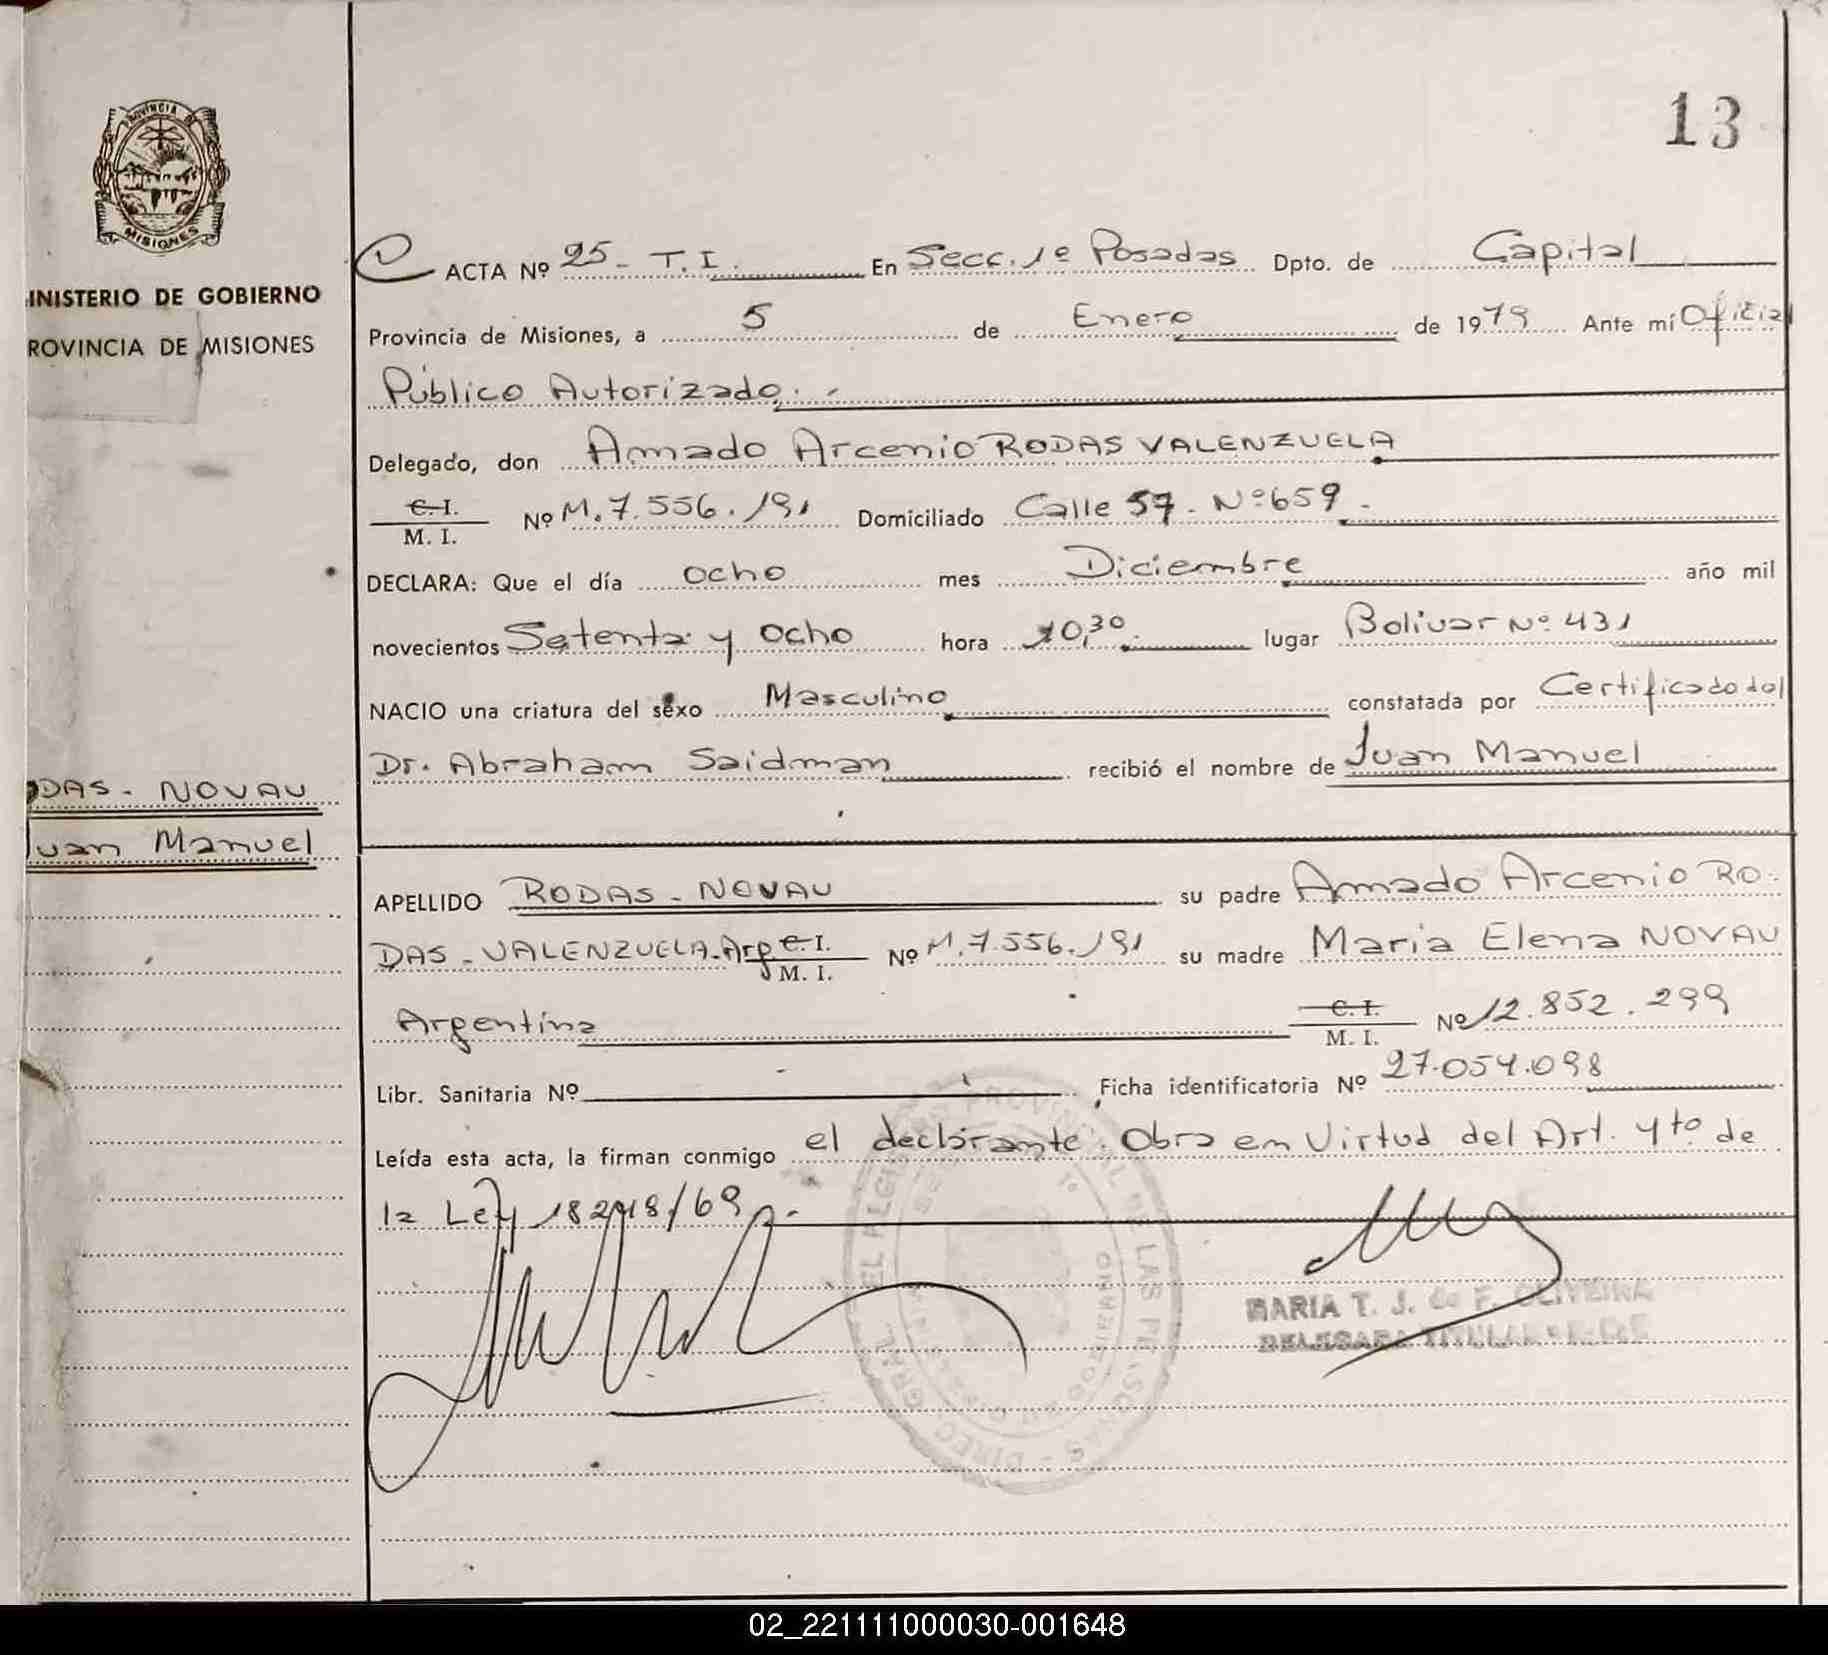 13
PROVINCIA DE
MISIONES
INISTERIO DE GOBIERNO
ROVINCIA DE MISIONES
ACTA Nº 25 - T.I. En Secc. 1º Posadas Dpto. de Capital
Provincia de Misiones, a 5 de Enero de 1979 Ante mí Oficial
Público Autorizado. -
Delegado, don Amado Arcenio RODAS VALENZUELA
C.I.
M. I. Nº M. 7.556.191 Domiciliado Calle 57 - Nº 659 -
DECLARA: Que el día ocho mes Diciembre año mil
novecientos Setenta y Ocho hora 10,30 lugar Bolivar Nº 431
NACIO una criatura del sexo Masculino constatada por Certificado del
Dr. Abraham Saidman recibió el nombre de Juan Manuel
DAS - NOVAU
Juan Manuel
APELLIDO RODAS - NOVAU su padre Amado Arcenio RO-
DAS - VALENZUELA - Arg C.I.
M. I. Nº M. 7.556.191 su madre Maria Elena NOVAU
Argentina C.I.
M. I. Nº 12.852.299
Libr. Sanitaria Nº Ficha identificatoria Nº 27.054.098
Leída esta acta, la firman conmigo el declarante. Obra en Virtud del Art. 4to de
la Ley 18248/69 -
MARIA T. J. de F. OLIVEIRA
DELEGADA TITULAR
02_221111000030-001648